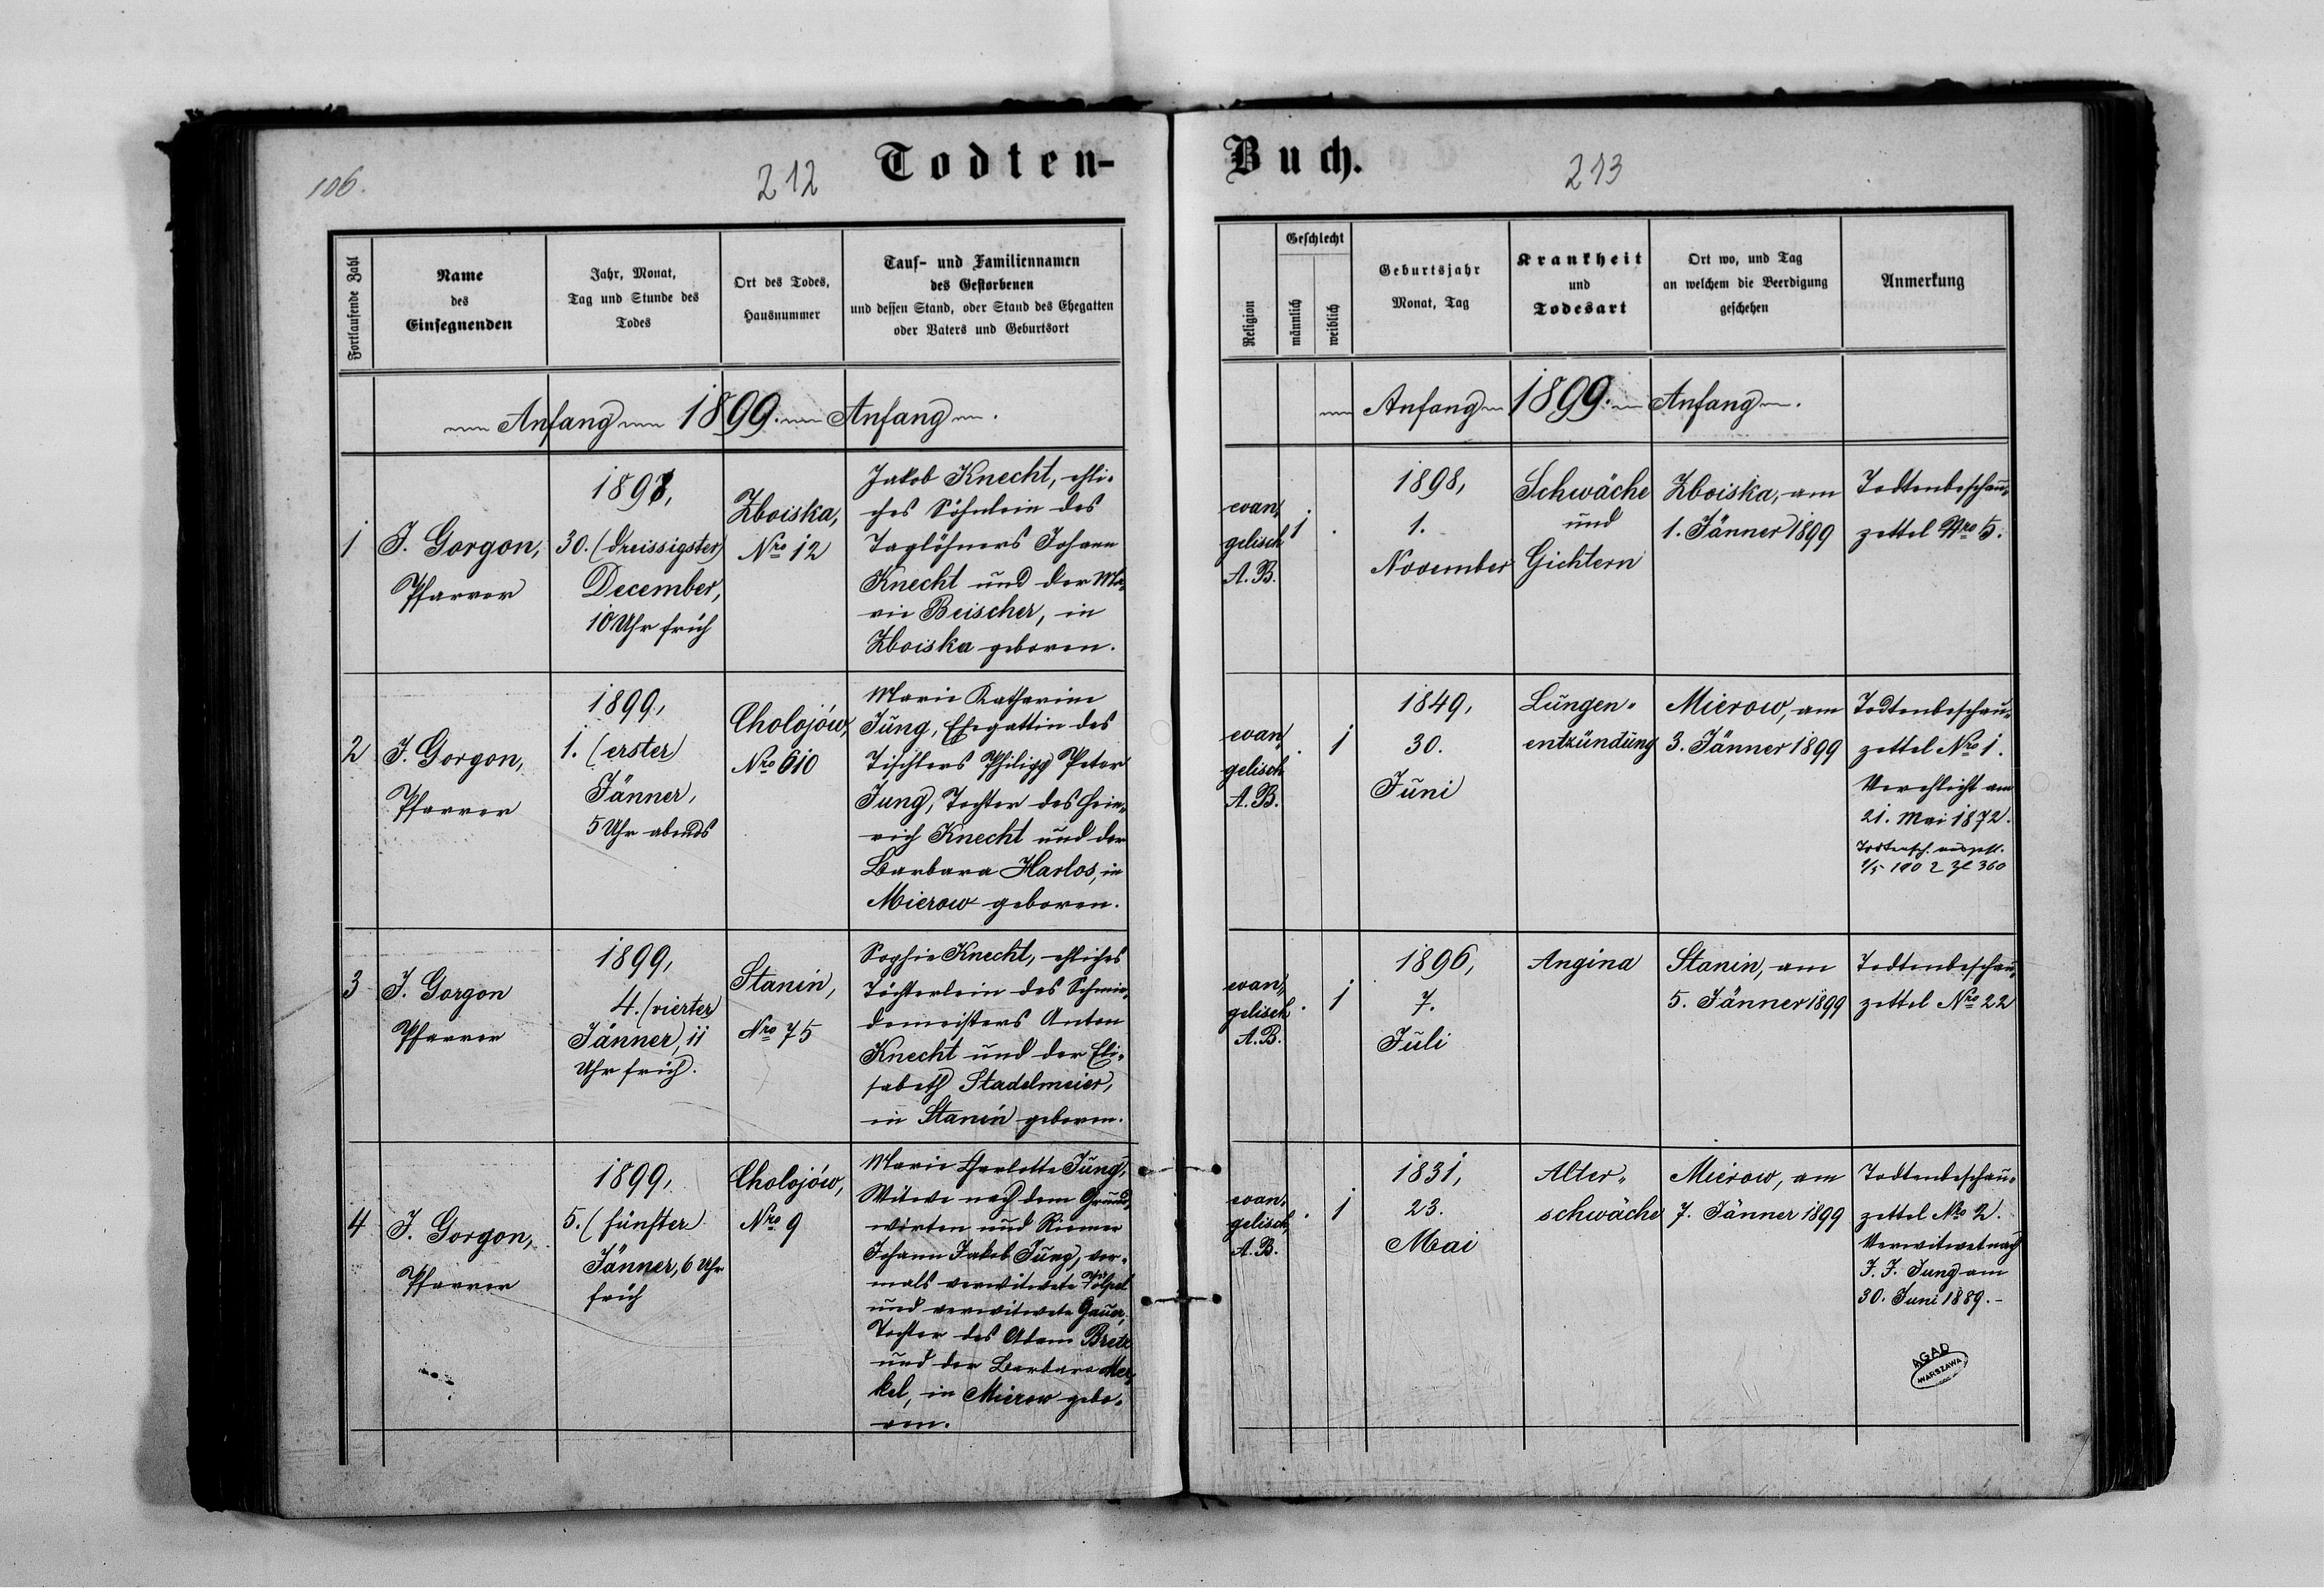 106.
212
Todten-
Fortlaufende Zahl
Name
des
Einsegnenden
Jahr, Monat,
Tag und Stunde des
Todes
Ort des Todes,
Hausnummer
Tauf- und Familiennamen
des Gestorbenen
und dessen Stand, oder Stand des Ehegatten
oder Vaters und Geburtsort
Anfang 1899. Anfang
1
J. Gorgon,
Pfarrer
1898,
30. (dreissigster)
December,
10 Uhr früh
Zboiska,
Nro 12
Jakob Knecht, ehli-
ches Söhnlein des
Taglöhners Johann
Knecht und der Ma-
rie Beischer, in
Zboiska geboren.
2
J. Gorgon,
Pfarrer
1899,
1. (erster)
Jänner,
5 Uhr abends
Cholojów,
Nro 610
Marie Katharine
Jung, Ehegattin des
Tischlers Philipp Peter
Jung, Tochter des Hein-
rich Knecht und der
Barbara Harlos, in
Mierow geboren.
3
J. Gorgon
Pfarrer
1899,
4. (vierter
Jänner, 11
Uhr früh.
Stanin,
Nro 75
Sophie Knecht, ehliches
Töchterlein des Schmie-
demeisters Anton
Knecht und der Eli-
sabeth Stadelmeier,
in Stanin geboren.
4
J. Gorgon,
Pfarrer
1899,
5. (fünfter
Jänner, 6 Uhr
früh
Cholojów,
Nro 9
Marie Charlotte Jung,
Witwe nach dem Grund-
wirten und Riemer
Johann Jakob Jung, vor-
mals verwitwete
und verwitwete Gauer,
Tochter des Adam Bretz
und der Barbara Mer-
kel, in Mierow gebo-
ren.
Buch.
213
Religion
Geschlecht
männlich
weiblich
Geburtsjahr
Monat, Tag
Krankheit
und
Todesart
Ort wo, und Tag
an welchem die Beerdigung
geschehen
Anmerkung
Anfang 1899. Anfang
evan-
gelisch
A. B.
1
.
1898,
1.
November
Schwäche
und
Gichtern
Zboiska, am
1. Jänner 1899
Todtenbeschau-
zettel Nro 5.
evan-
gelisch
A. B.
.
1
1849,
30.
Juni
Lungen-
entzündung
Mierow, am
3. Jänner 1899
Todtenbeschau-
zettel Nro 1.
Verehlicht am
21. Mai 1872.
Todtensch. ausgest.
evan-
gelisch
A. B.
.
1
1896,
7.
Juli
Angina
Stanin, am
5. Jänner 1899
Todtenbeschau-
zettel Nro 22
evan-
gelisch
A. B.
.
1
1831,
23.
Mai
Alter-
schwäche
Mierow, am
7. Jänner 1899
Todtenbeschau-
zettel Nro 2.
Verwitwet nach
J. J. Jung am
30. Juni 1889.-
AGAD
WARSZAWA